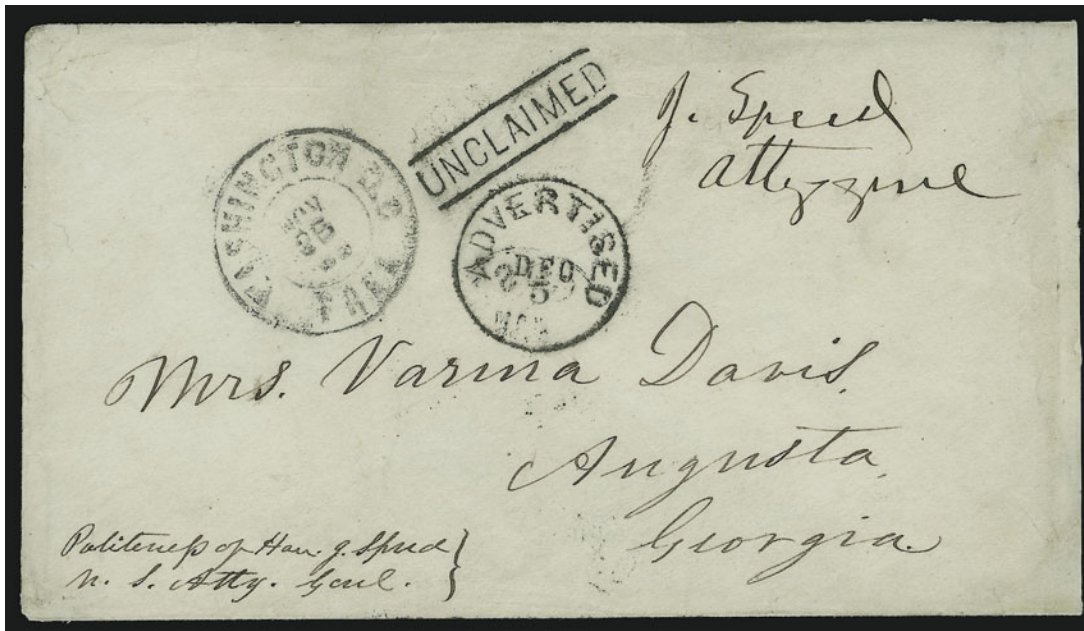 UNCLAIMED
J. Speed
Atty genl
WASHINGTON D.C.
NOV
FREE
ADVERTISED
DEC
5
Mrs. Varina Davis.
Augusta,
Georgia.
Politeneſs of Hon. J. Speed
U. S. Atty. Genl.